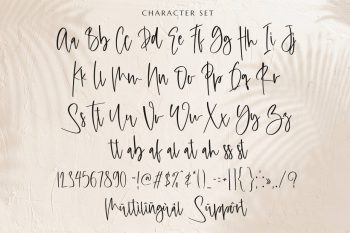 CHARACTER SET
Aa Bb Cc Dd Ee Ff Gg Hh Ii Jj
Kk Ll Mm Nn Oo Pp Qq Rr
Ss Tt Uu Vv Ww Xx Yy Zz
tt ab af al at ah ss st
1234567890 -!@#$%^&*()_-:=+||{};:'»,./?
Multilingual Support